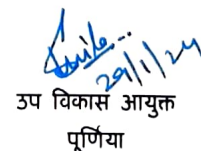 29/1/24
उप विकास आयुक्त
पूर्णिया